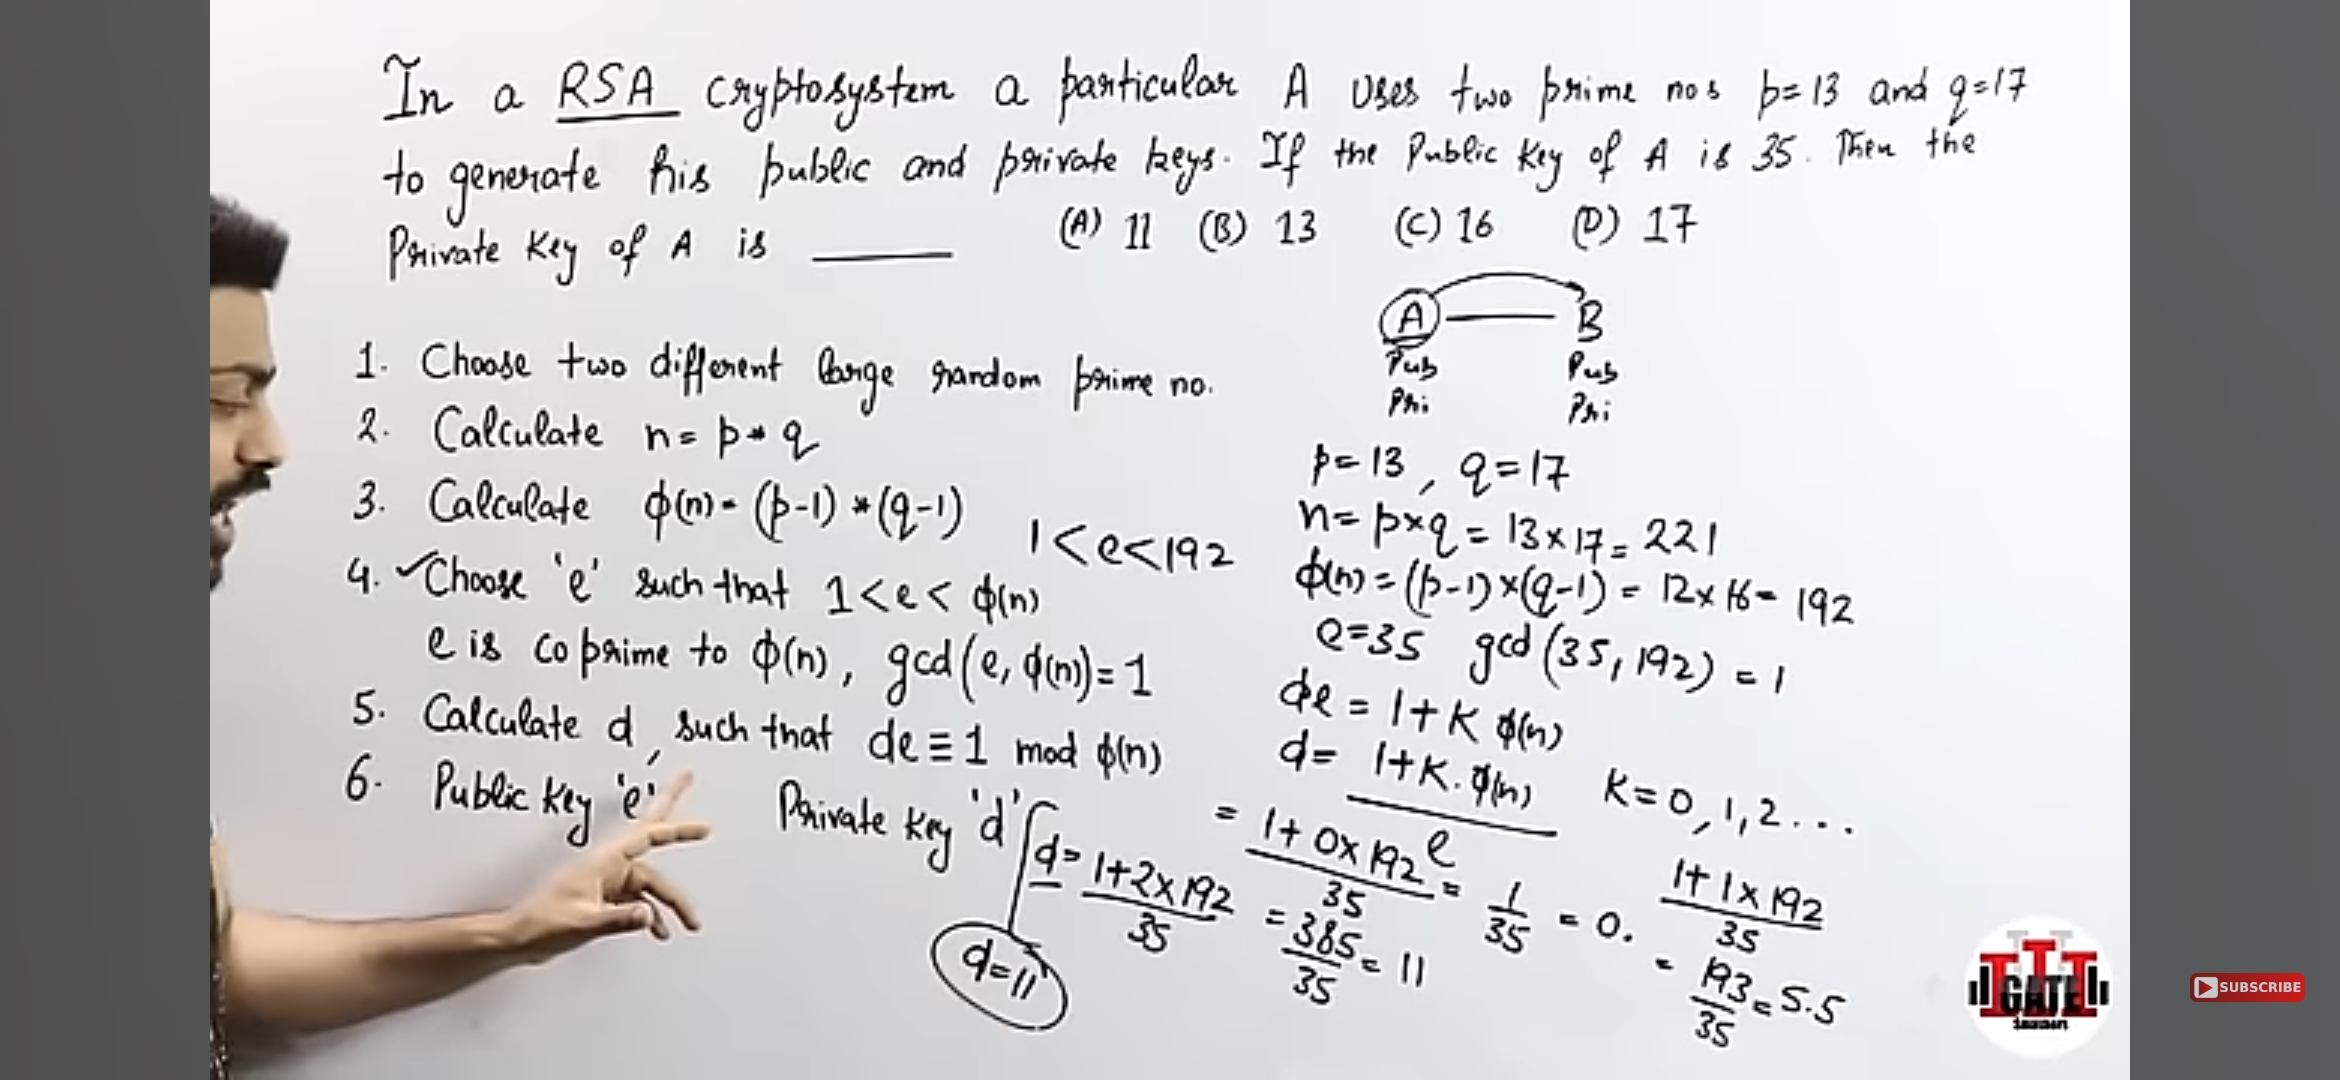 In a RSA cryptosystem a particular A uses two prime nos p=13 and q=17
to generate his public and private keys. If the Public Key of A is 35. Then the
Private Key of A is ______ (A) 11 (B) 13 (C) 16 (D) 17
A B
Pub Pub
Pri Pri
1. Choose two different large random prime no.
2. Calculate n = p * q
3. Calculate ϕ(n) = (p-1) * (q-1)
1 < e < 192
4. ✓Choose 'e' such that 1 < e < ϕ(n)
e is coprime to ϕ(n), gcd(e, ϕ(n)) = 1
5. Calculate d, such that de ≡ 1 mod ϕ(n)
6. Public Key 'e' Private Key 'd'
p = 13, q = 17
n = p×q = 13×17 = 221
ϕ(n) = (p-1)×(q-1) = 12×16 = 192
e=35 gcd(35, 192) = 1
de = 1+K ϕ(n)
d = 1+K.ϕ(n) / e K=0,1,2...
= 1+0×192 / 35 = 1/35 = 0.
1+1×192 / 35
= 193/35 = 5.5
d = 1+2×192 / 35 = 385/35 = 11
d=11
GATE
SUBSCRIBE